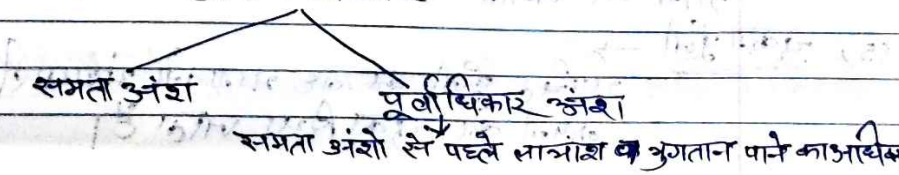 समता अंश
पूर्वाधिकार अंश
समता अंशो से पहले लाभांश व भुगतान पाने का अधिक